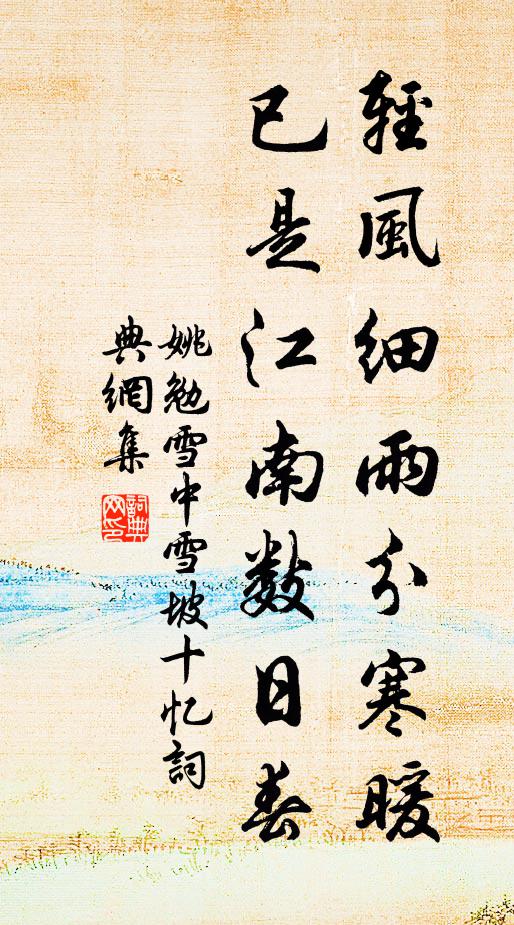 輕風細雨分寒暖
已是江南数日春
姚勉雪中雪坡十忆詞
典網集
詞典網印